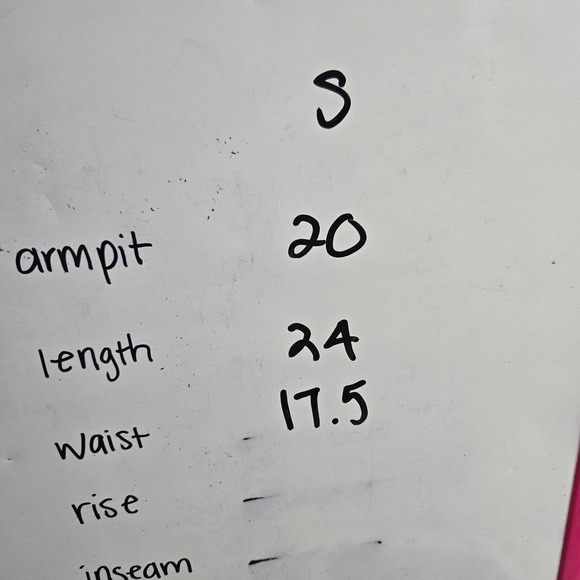 S
armpit 20
length 24
17.5
waist -
rise -
inseam -